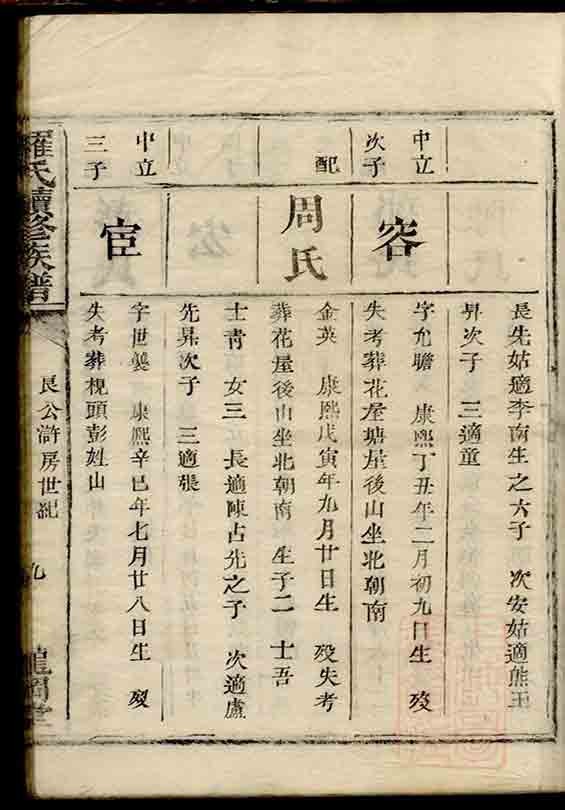 長先姑適李南生之六子　次安姑適熊玉
昇次子　三適童
中立
次子
容
字允瞻　康熙丁丑年二月初九日生　歿
失考葬花屋塘屋後山坐北朝南
配
周氏
金英　康熙戊寅年九月廿日生　歿失考
葬花屋後山坐北朝南　生子二　士吾
士青　女三　長適陳占先之子　次適盧
先昇次子　三適張
中立
三子
宦
字世襲　康熙辛巳年七月廿八日生　歿
失考葬枧頭彭姓山
羅氏續修族譜
艮公滸房世紀
九